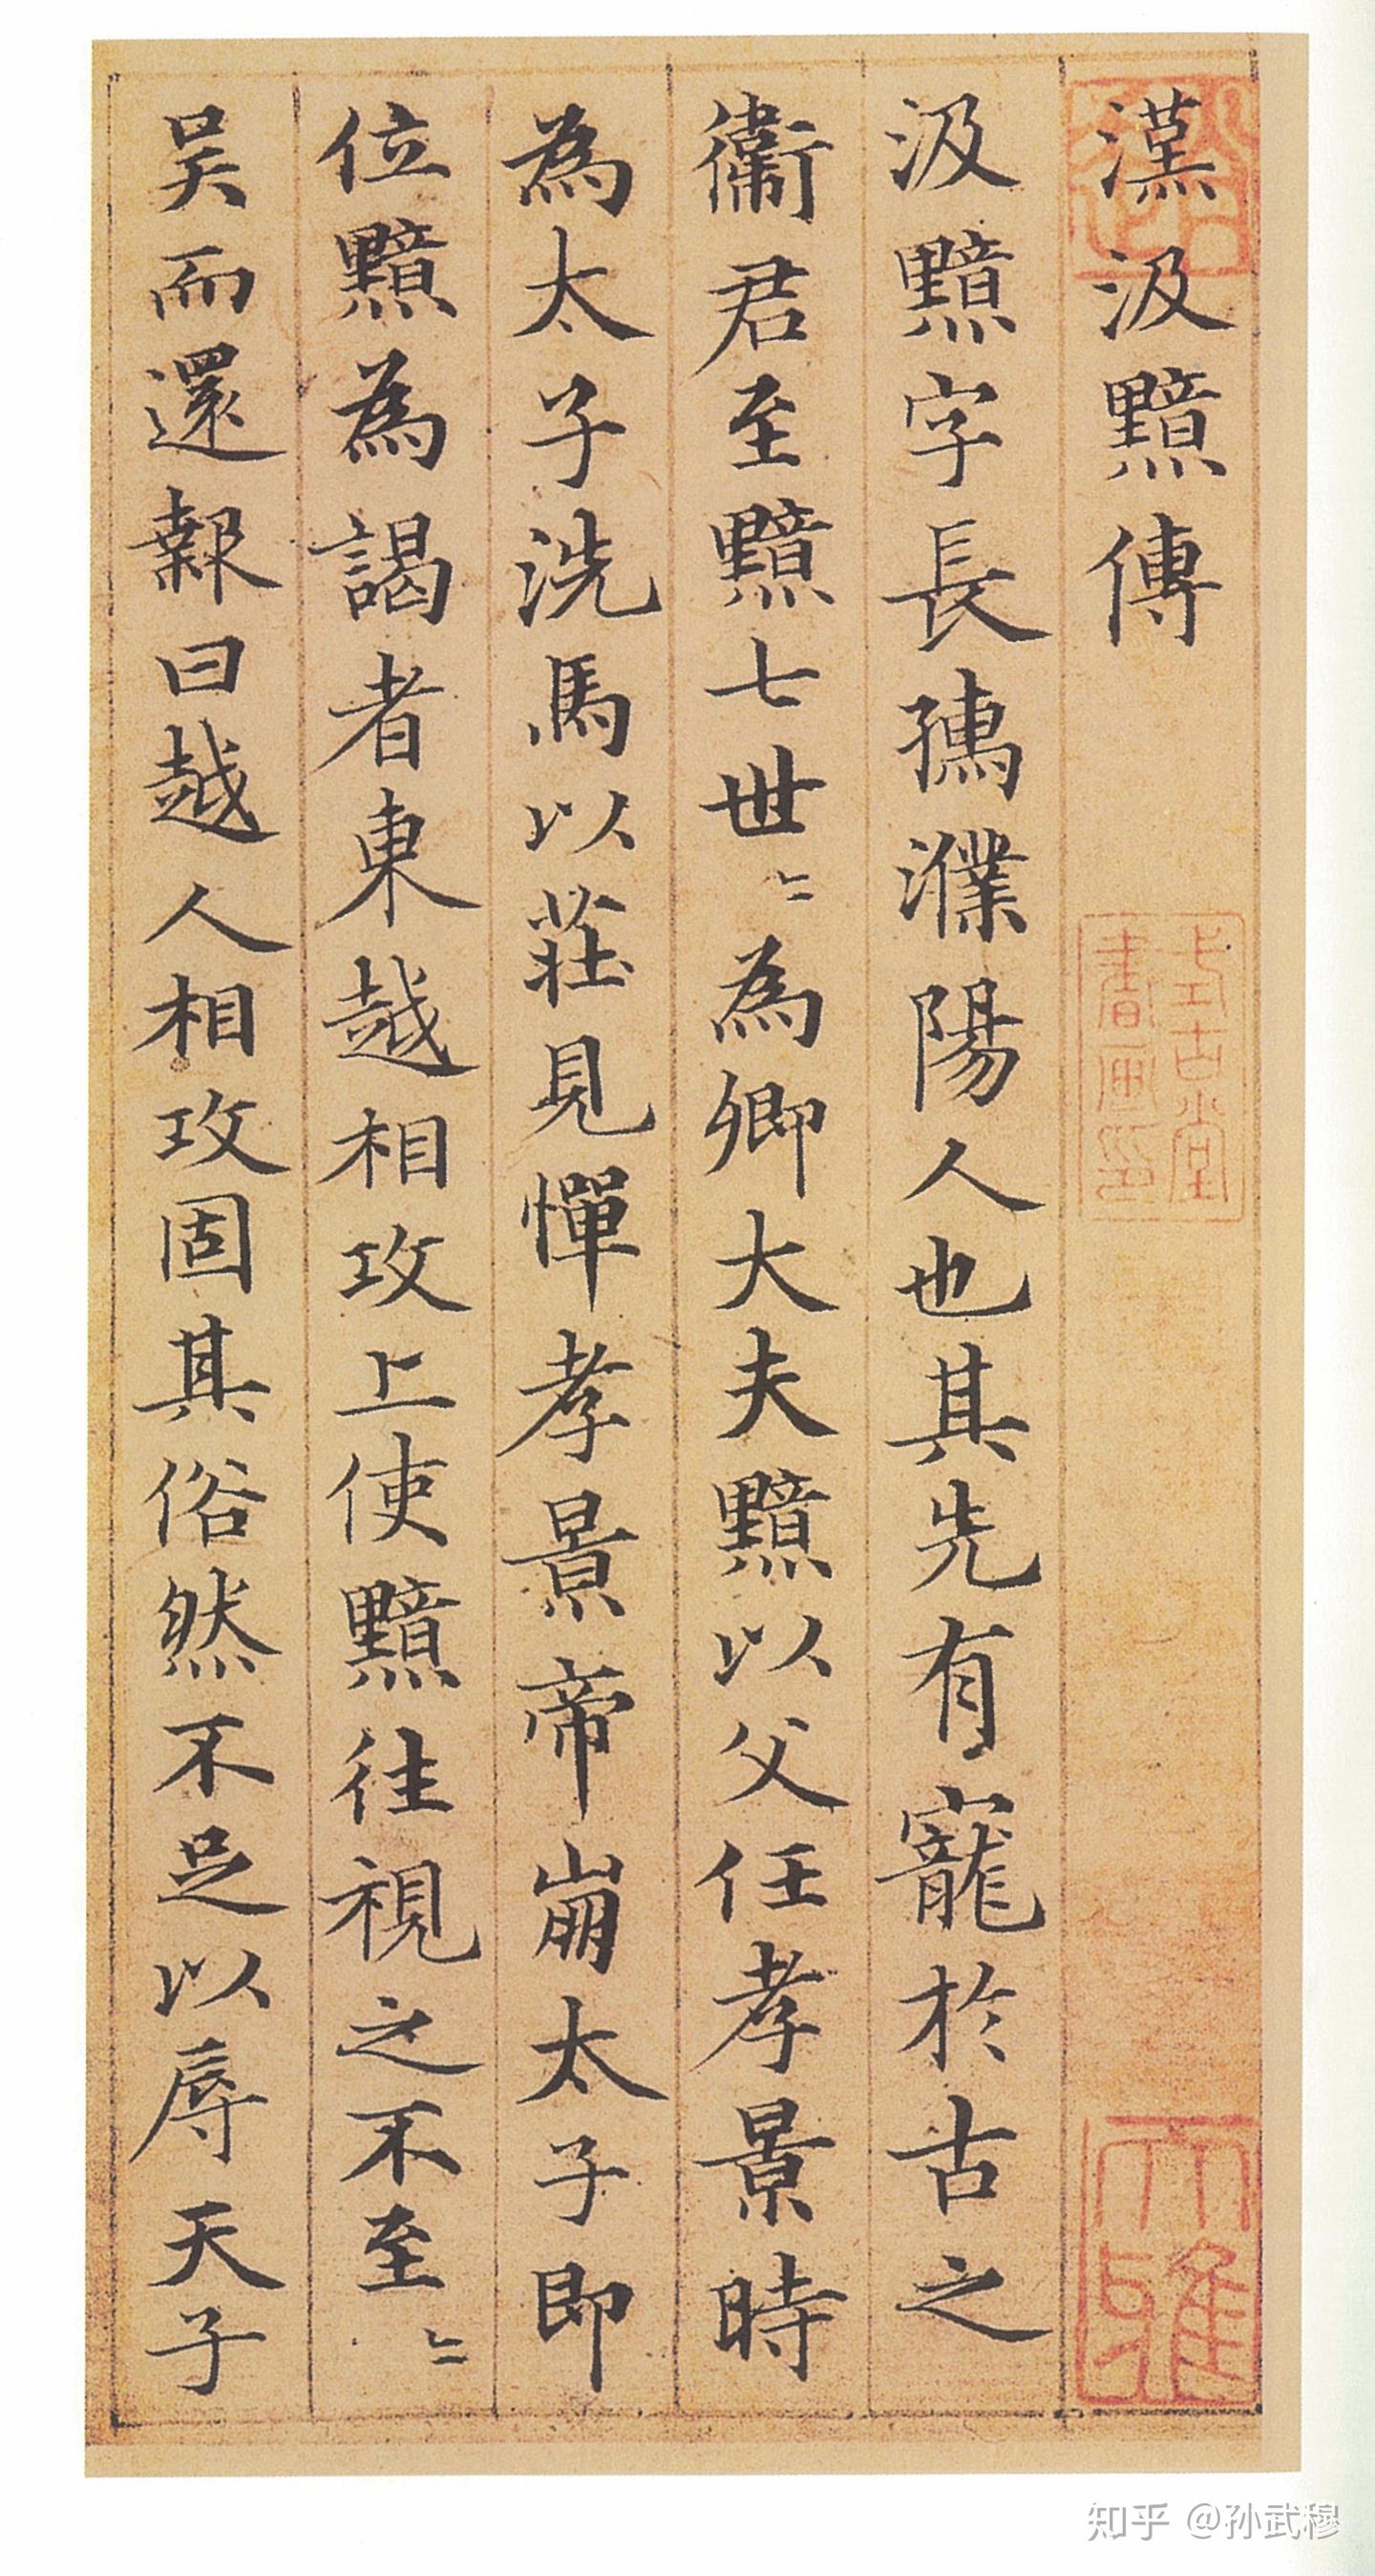 漢汲黯傳
汲黯字長孺濮陽人也其先有寵於古之
衛君至黯七世〻為卿大夫黯以父任孝景時
為太子洗馬以莊見憚孝景帝崩太子即
位黯為謁者東越相攻上使黯往視之不至〻
吳而還報曰越人相攻固其俗然不足以辱天子
式古堂
書畫印
知乎 @孙武穆